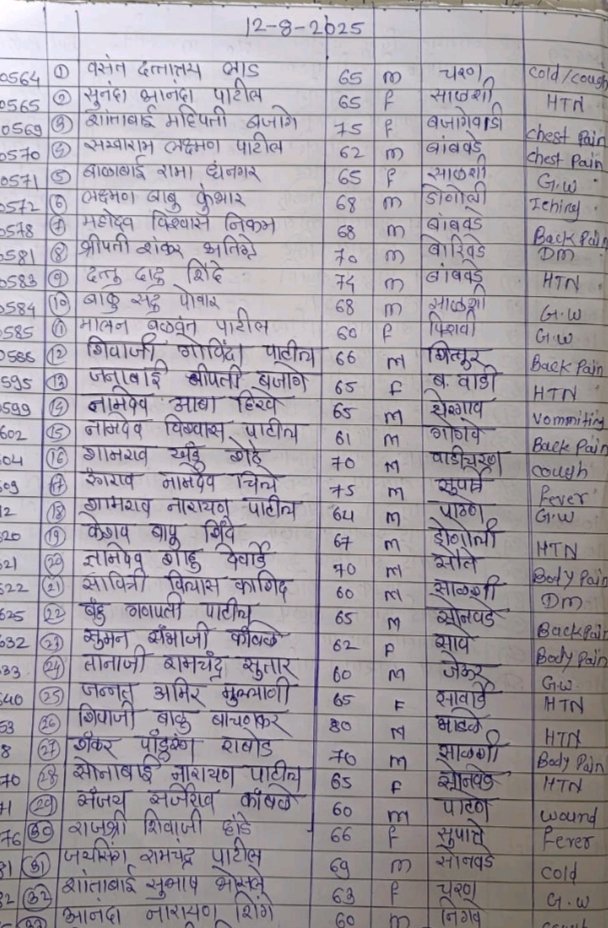 12-8-2025
0564 ① वसंत दत्तात्रय लाड 65 m चरण Cold/cough
0565 ② सुनंदा आनंदा पाटील 65 f साळशी HTN
0569 ③ शांताबाई महिपती बजागे 75 f बजागेवाडी Chest Pain
0570 ④ सखाराम लक्ष्मण पाटील 62 m बांबवडे Chest Pain
0571 ⑤ बाळाबाई रामा धनगर 65 f साळशी G.W
0572 ⑥ लक्ष्मण बाबु कुंभार 68 m डोणोली Iching
0578 ⑦ महादेव विश्वास निकम 68 m बांबवडे Back Pain
0581 ⑧ श्रीपती शंकर 70 m DM
0583 ⑨ दत्तु दादु शिंदे 74 m बांबवडे HTN
0584 ⑩ बाकु सदु पोवार 68 m साळशी G.W
0585 ⑪ मालन बळवंत पाटील 60 f पिशवी G.W
0586 ⑫ शिवाजी गोविंदा पाटील 66 M शित्तूर Back Pain
0595 ⑬ जनाबाई श्रीपती बजागे 65 F ब. वाडी HTN
0599 ⑭ नामदेव आबा हिरवे 65 M शेरगाव Vommiting
602 ⑮ नामदेव विश्वास पाटील 61 M गोगवे Back Pain
604 ⑯ शामराव खंडु 70 M वाडीचरण cough
609 ⑰ रंगराव नामदेव चिले 75 M सुपात्रे Fever
12 ⑱ शामराव नारायण पाटील 64 M पाटणे G.W
620 ⑲ केशव बापू शिंदे 67 M डोणोली HTN
621 ⑳ ज्ञानदेव देवार्डे 70 M सोते Body Pain
622 ㉑ सावित्री विलास कागिद 60 M साळशी DM
625 ㉒ बंडु गणपती पाटील 65 M सोनवडे Back Pain
632 ㉓ सुमन संभाजी कांबळे 62 F सावे Body Pain
33 ㉔ तानाजी रामचंद्र सुतार 60 M जेऊर G.W.
640 ㉕ जन्नत अमिर मुल्लाणी 65 F सावर्डे HTN
53 ㉖ शिवाजी बाळु बाचणकर 80 M भाडळे HTN
8 ㉗ शंकर पांडुरंग राबोड 70 M साळशी Body Pain
70 ㉘ सोनाबाई नारायण पाटील 65 F सोनवडे HTN
71 ㉙ संजय सर्जेराव कांबळे 60 M पाटणे wound
76 ㉚ राजश्री शिवाजी हांडे 66 F सुपात्रे Fever
81 ㉛ जयसिंग रामचंद्र पाटील 69 m सोनवडे Cold
82 ㉜ शांताबाई सुभाष भोसले 63 f चरण G.W
㉝ आनंदा नारायण शिंगे 60 m निगवे